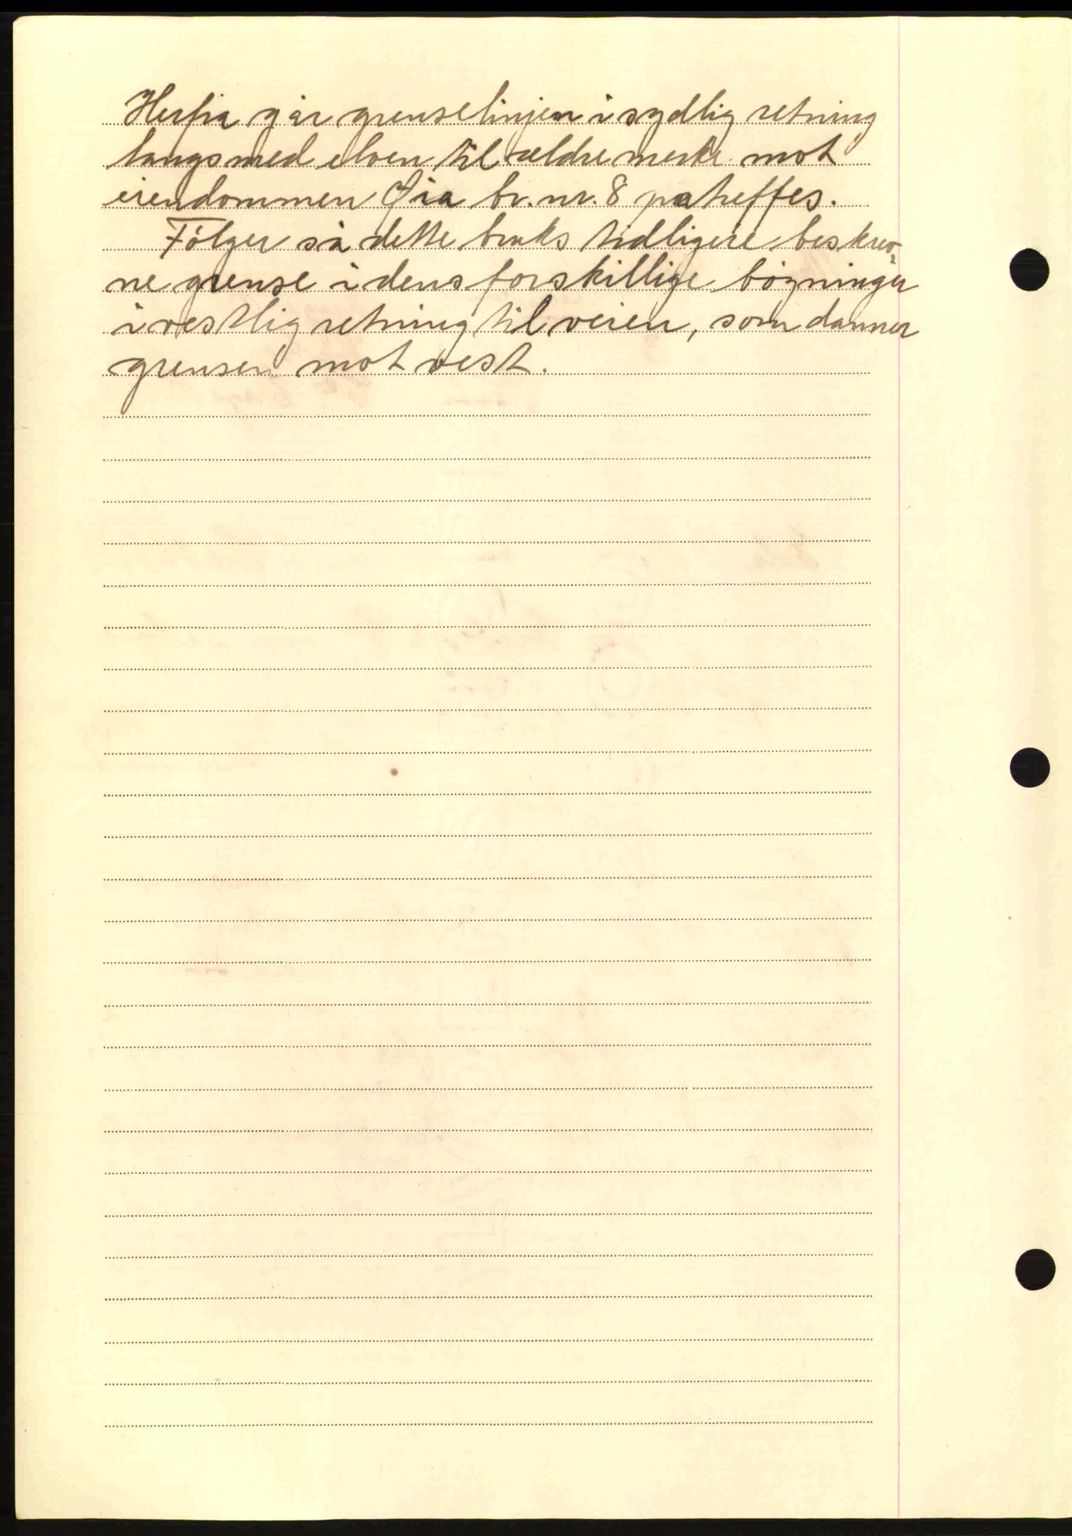 Herfra går grenselinjen i sydlig retning
langs med elven til ældre merke mot
eiendommen Øia br. nr. 8 påtreffes.
Følger så dette bruks tidligere beskrev-
ne grense i dens forskillige bøgninger
i vestlig retning til veien, som danner
grensen mot vest.